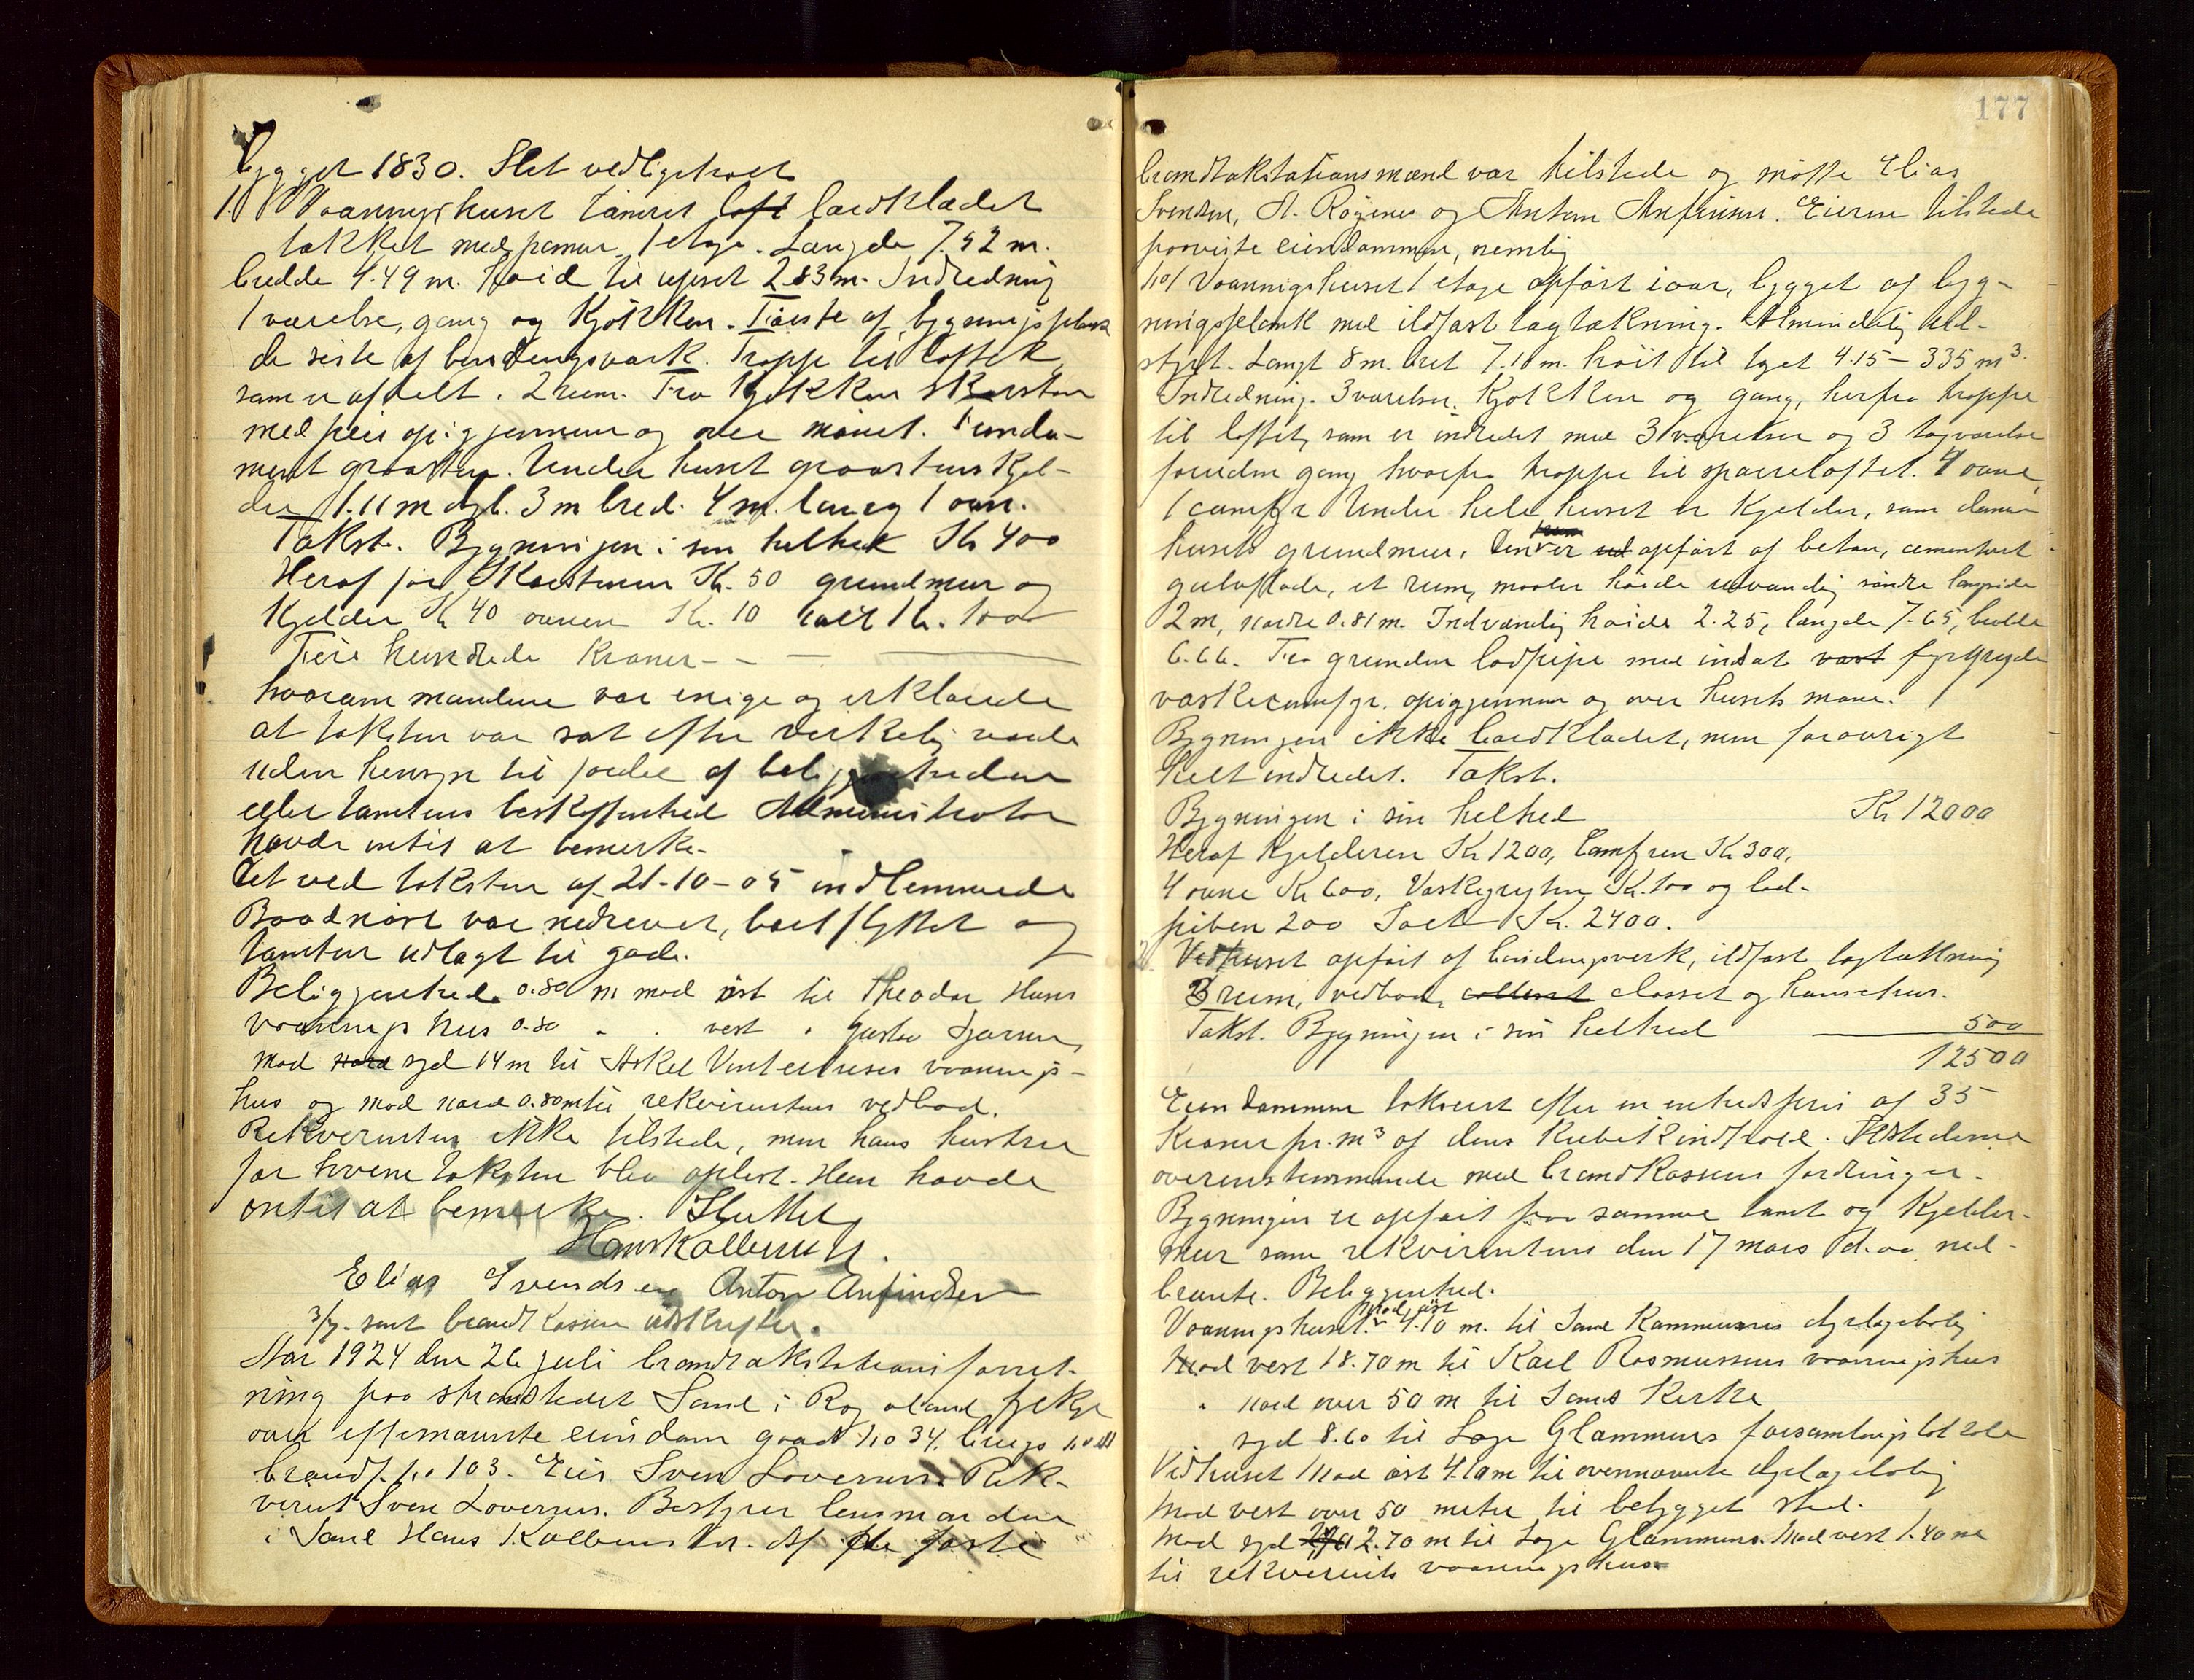 bygget 1830. Slet vedligeholt
1. Vaaningshuset tømret loft bordklædet
tækket med panner 1 etage. Længde 7.92 m.
bredde 4.49 m. Høid til mønet 2.83 m. Indredning
1 værelse, gang og Kjøkken. Første af bygningsplank
de siste af bindingsværk. Troppe til loftet
som er afdelt. 2 rum. Fra Kjøkken skorsten
med peis opigjennem og over mønet. Funda-
ment graasten. Under huset graastens Kjel-
der 1.11 m dyb. 3 m bred. 4 m. lang 1 ovn.
Takst. Bygningen i sin helhet Kr 400
Heraf for Skorstenen Kr. 50 grundmur og
Kjelder Kr 40 ovnen Kr. 10 ialt Kr. 100
Fire hundrede Kroner - -
hvorom mændene var enige og erklærede
at taksten var sat efter virkelig værde
uden hensyn til fordel af beliggenheden
eller tomtens beskaffenhed Administrator
havde intet at bemerke.
Det ved taksten af 21-10-05 indlemmede
Baadnøst var nedrevet, bortflyttet og
tomten udlagt til gade.
Beliggenhede 0.80 m mod øst til Theodor Hans
vaanings hus 0.80 " . vest . Gustav
mod nord syd 14 m til Askel Vintermyres vaanings-
hus og mod nord 0.80 m til rekvirentens vedbod.
Rekvirenten ikke tilstede, men hans hustru
for hvem taksten blev oplest. Hun havde
intet at bemerke. Sluttet
Hans Kolbenstv.
Elias Svendsen Anton Anfindsen
3/7. sent brandkassen udskrifter.
Aar 1924 den 26 juli brandtakstationsforret-
ning paa strandstedet Sand i Rogaland fylke
over efternævnte eiendom gaards No 34. brugs No
brandf. No 103. Eier Sven Lovernes. Rek-
virent Sven Lovernes. Bestyrer lensmanden
i Sand Hans Kolbenstv. Af de faste
177
brandtakstationsmænd var tilstede og møtte Elias
Svendsen, A. Røgenes og Anton Anfinsen. Eieren tilstede
paaviste eiendommen, nemlig
No 1 Vaaningshuset 1 etage opført iaar, bygget af byg-
ningsplank med ildfast tagtækning. Almindelig ud-
styrt. Langt 8 m. bret 7.10 m. høit til taget 4.15 - 335 m3.
Indredning. 3 værelser. Kjøkken og gang, herfra troppe
til loftet, som er indredet med 3 værelser og 3 tagværelse
foruden gang hvorfra troppe til sparreloftet. 4 ovne,
1 comfyr Under hele huset er Kjelder, som danner
husets grundmur. Denne er opført af beton, cementert
gulvflade, et rum, maaler høide udvændig søndre langside
2 m, nordre 0.81 m. Indvændig høide 2.25, længde 7.65, bredde
6.66. Fra grunden lodpipe med indsat vask fyrgryde
vaskecomfyr. opigjennem og over husets møne.
Bygningen ikke bordklædet, men forøvrigt
helt indredet. Takst.
Bygningen i sin helhed Kr 12000
Heraf Kjelderen Kr 1200, Comfyren Kr 300,
4 ovne Kr 600, Vaskegryten Kr. 100 og lod-
piben 200 Ialt Kr. 2400.
2. Vedhuset opført af bindingsverk, ildfast tagtækning
3 rum, vedbod, closset og hønsehus.
Takst. Bygningen i sin helhed 500
12500
Eiendommen takseret efter en enhedspris af 35
Kroner pr. m3 af dens Kubikindhold. Ildstederne
overensstemmende med brandkassens fordringer.
Bygningen er opført paa samme tomt og Kjelder-
mur som rekvirentens den 17 mars d. aa. ned-
brænte. Beliggenhed.
Vaaningshuset. Mod øst 4.10 m. til Sand Kommunes dyrlægebolig
Mod vest 18.70 m til Karl Rosmussens vaaningshus
" nord over 50 m til Sands Kirke
syd 8.60 til Loge Glommens forsamlingslokale
Vedhuset Mod øst 4.10 m til ovennævnte dyrlægebolig
Mod vest over 50 meter til bebygget sted.
Mod syd 2.70 m til Loge Glommens. Mod vest 1.40 m
til rekvirents vaaningshus